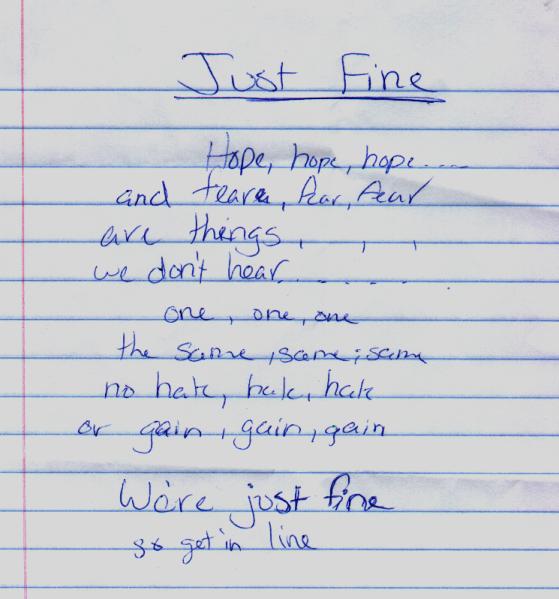 Just Fine
Hope, hope, hope.....
and fear, fear, fear
are things, , ,
we don't hear.......
one, one, one
the same, same, same
no hate, hate, hate
or gain, gain, gain
We're just fine
so get in line